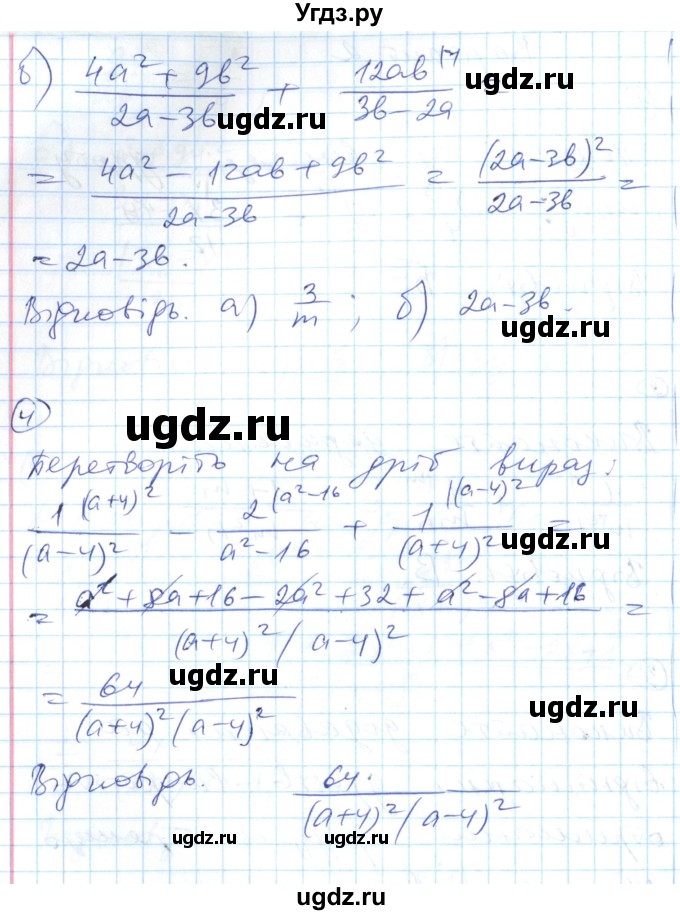 Угдз.ру
б) (4a² + 9b²)/(2a - 3b) + (12ab |⁻¹)/(3b - 2a)
ugdz.ru
ugdz.ru
= (4a² - 12ab + 9b²)/(2a - 3b) = (2a - 3b)²/(2a - 3b) =
= 2a - 3b.
Відповідь. а) 3/m; б) 2a - 3b.
ugdz.ru
④
ugdz.ru
Перетворіть на дріб вираз:
1 |(a+4)²/(a-4)² - 2 |(a²-16/(a²-16) + 1 |(a-4)²/(a+4)² =
ugdz.ru
= (a² + 8a + 16 - 2a² + 32 + a² - 8a + 16)/((a+4)²(a-4)²) =
ugdz.ru
= 64/((a+4)²(a-4)²)
ugdz.ru
Відповідь. 64/((a+4)²(a-4)²).
ugdz.ru
ugdz.ru
ugdz.ru